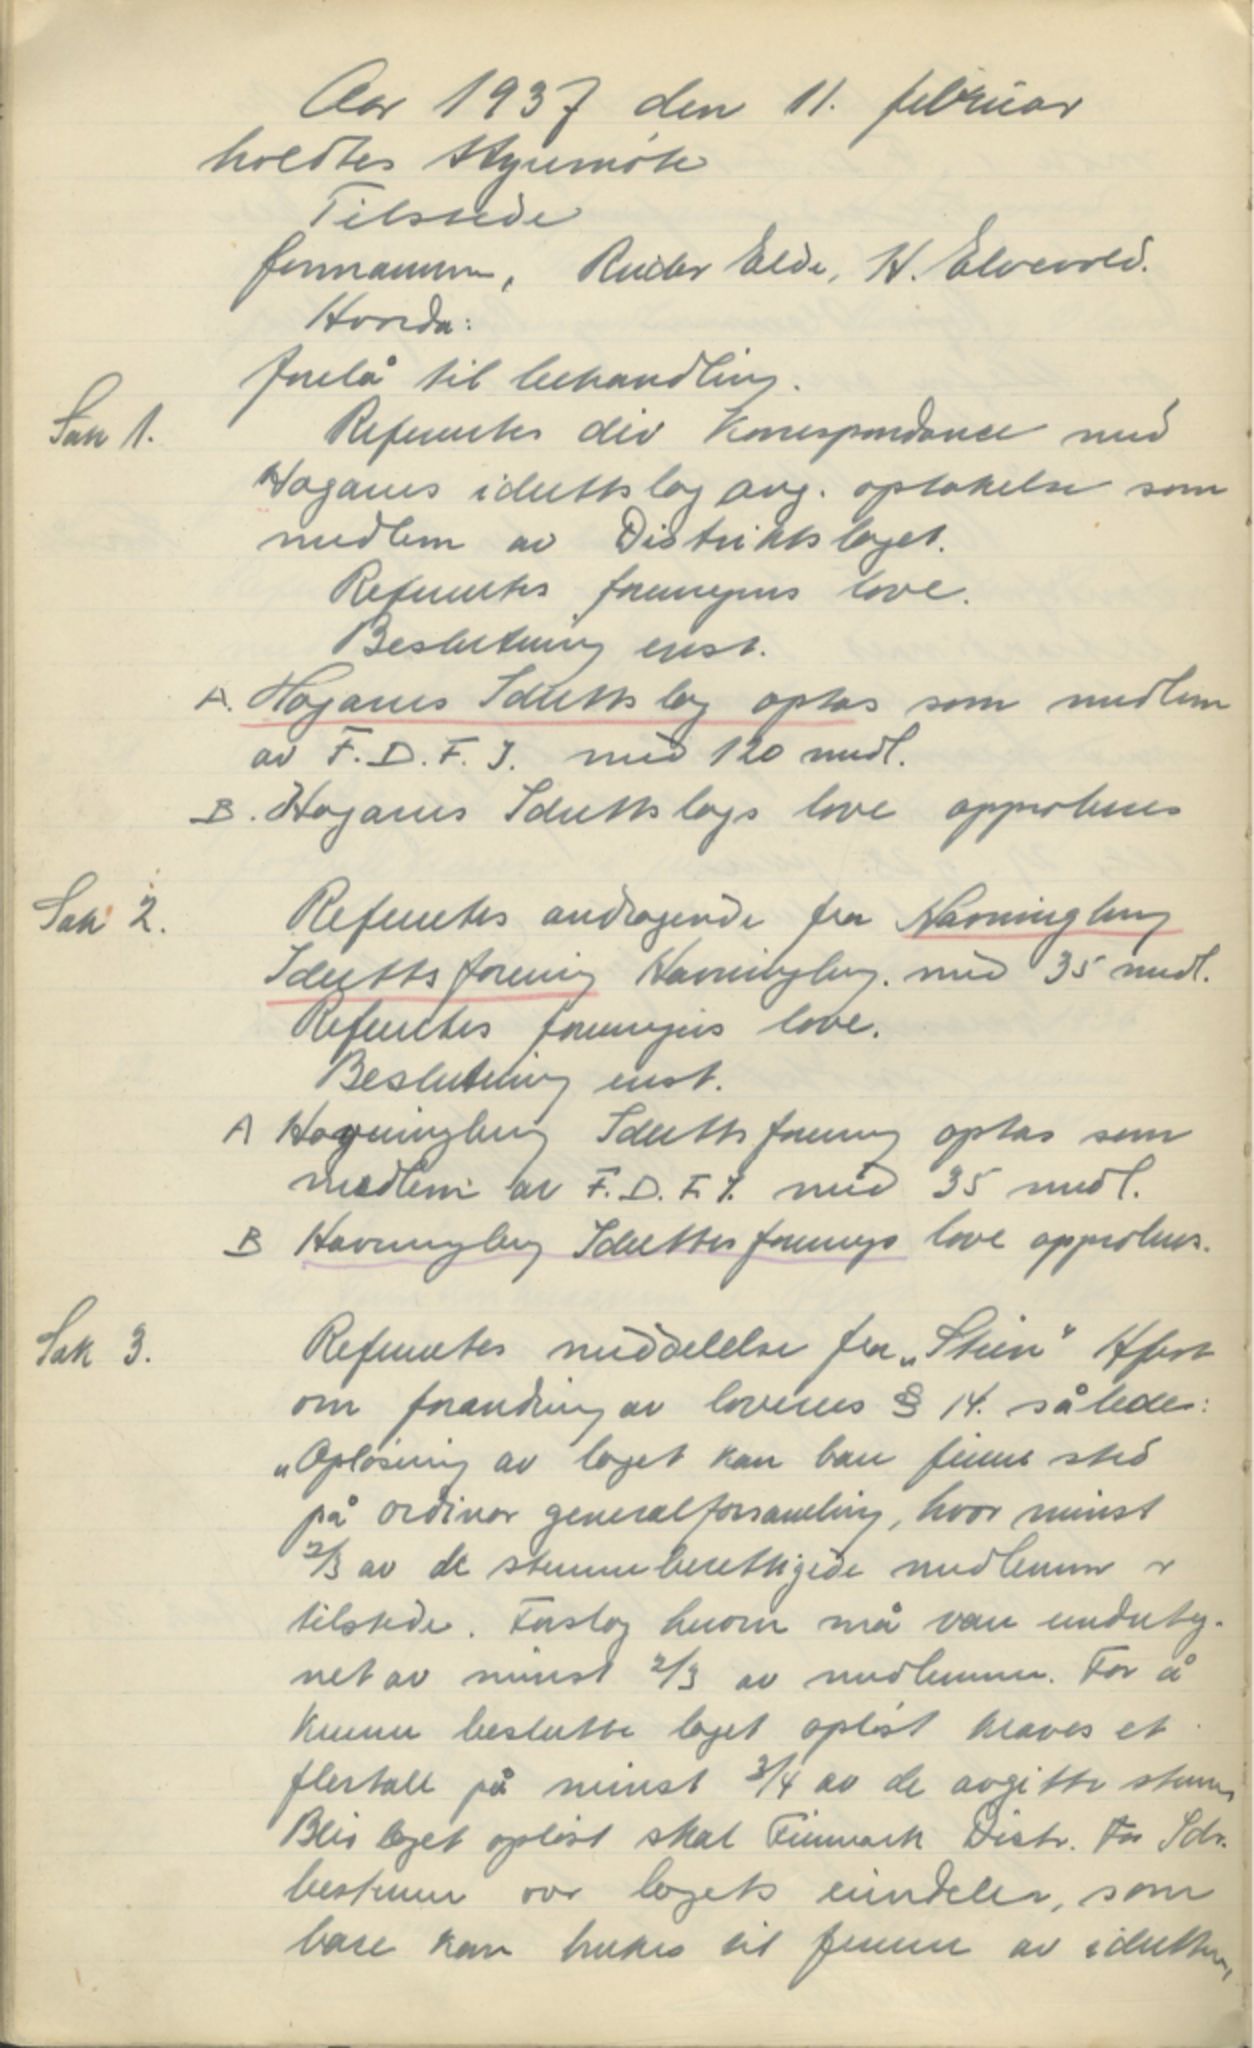 Aar 1937 den 11. februar
holdtes styremöte
Tilstede
formannen, Elde, H. Elvevold.
Hvorda:
forelå til behandling.
Sak 1. Refereertes div korrespondance med
idrettslag ang. optakelse som
medlem av Distriktslaget.
Refereertes foreningens love.
Beslutning enst.
A. Idrettslag optas som medlem
av F.D.F.I. med 120 medl.
B. Idrettslags love approberes
Sak 2. Refereertes andragende fra Havningberg
Idrettsforening Havningberg. med 35 medl.
Refereertes foreningens love.
Beslutning enst.
A Havningberg Idrettsforening optas som
medlem av F.D.F.I. med 35 medl.
B Havningberg Idrettsforenings love approberes.
Sak 3. Refereertes meddelelse fra „Stein" Hfest
om forandring av lovenes § 14. således:
„Opløsning av laget kan bare finne sted
på ordinær generalforsamling, hvor minst
2/3 av de stemmeberettigede medlemmer er
tilstede. Forslag herom må være underteg-
net av minst 2/3 av medlemmene. For å
kunne beslutte laget opløst kræves et
flertall på minst 3/4 av de avgitte stemmer
Blir laget opløst skal Finmark Distr. For Idr.
bestemme over lagets eiendeler, som
bare kan brukes til fremme av idretten,